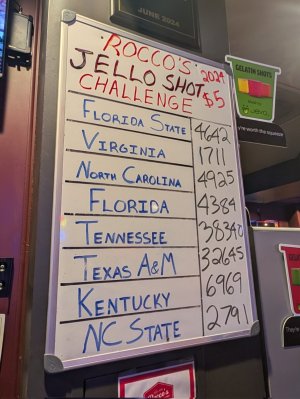 JUNE 2024
ROCCO'S 2024
JELLO SHOT
CHALLENGE $5
FLORIDA STATE 4642
VIRGINIA 1711
NORTH CAROLINA 4925
FLORIDA 4384
TENNESSEE 38340
TEXAS A&M 32645
KENTUCKY 6969
NC STATE 2791
GELATIN SHOTS
JEVO
're worth the squeeze
They're
Rocco's